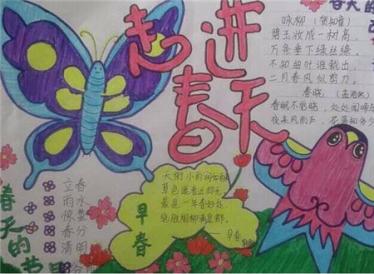 走进
春天
春天的
咏柳（贺知章）
碧玉妆成一树高，
万条垂下绿丝绦。
不知细叶谁裁出，
二月春风似剪刀。
春晓（孟浩然）
春眠不觉晓，处处闻啼鸟
夜来风雨声，花落知多少
天街小雨润如酥
草色遥看近却无。
最是一年春好处，
绝胜烟柳满皇都。
早春
春天的节
立春
雨水
惊蛰
春分
清明